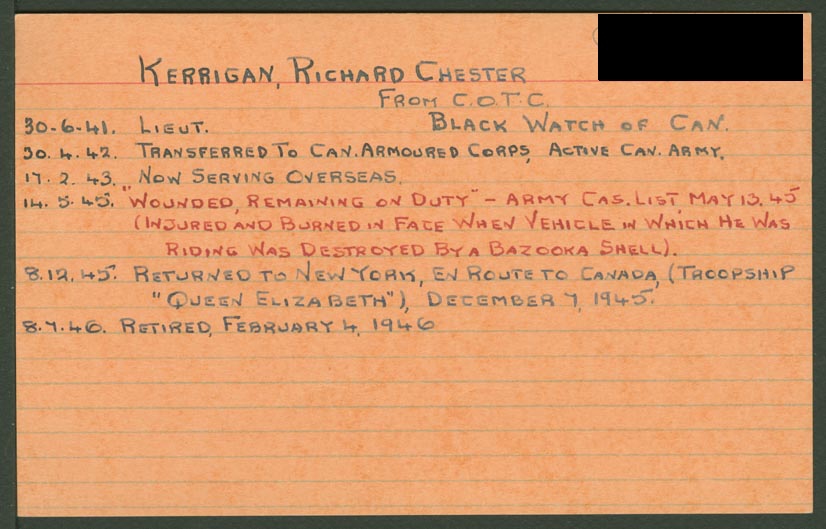 KERRIGAN, RICHARD CHESTER
FROM C.O.T.C.
30-6-41. LIEUT. BLACK WATCH OF CAN.
30.4.42. TRANSFERRED TO CAN. ARMOURED CORPS, ACTIVE CAN. ARMY.
17.2.43. NOW SERVING OVERSEAS.
14.5.45. "WOUNDED, REMAINING ON DUTY" - ARMY CAS. LIST MAY 13. 45
(INJURED AND BURNED IN FACE WHEN VEHICLE IN WHICH HE WAS
RIDING WAS DESTROYED BY A BAZOOKA SHELL).
8.12.45. RETURNED TO NEW YORK, EN ROUTE TO CANADA, (TROOPSHIP
"QUEEN ELIZABETH"), DECEMBER 7, 1945.
8.7.46. RETIRED, FEBRUARY 4, 1946